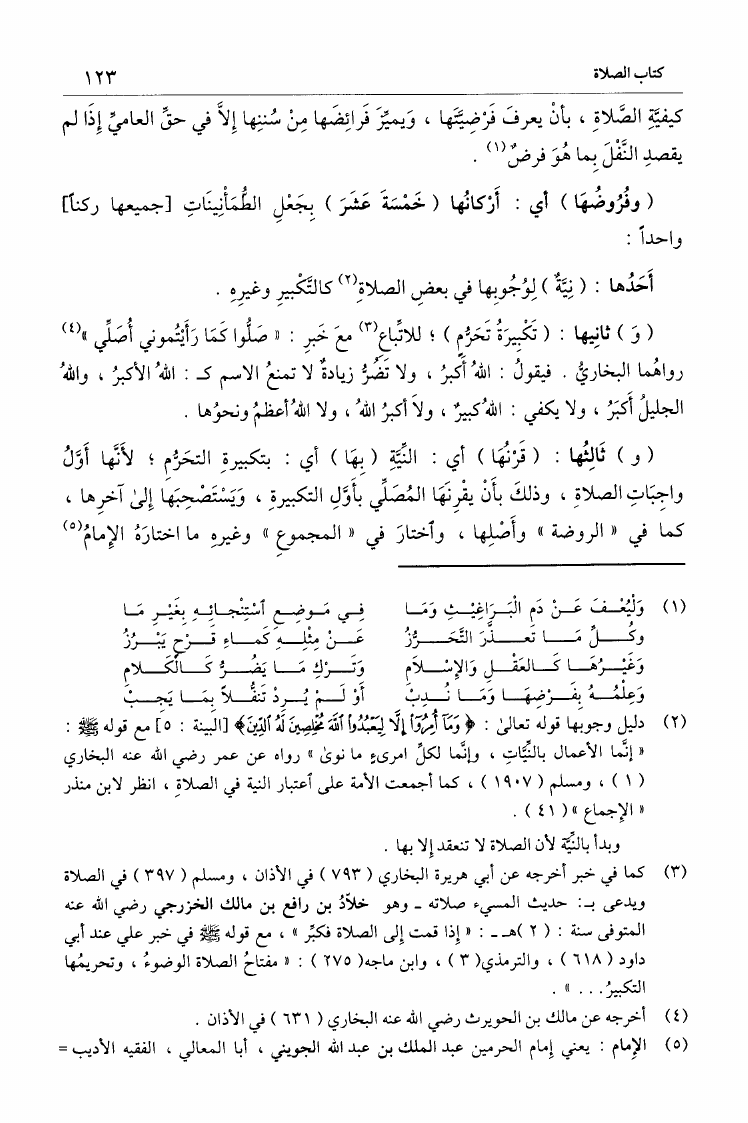 كتاب الصلاة ١٢٣
كيفيَّةِ الصَّلاةِ ، بأنْ يعرفَ فَرْضِيَّتَها ، وَيميِّزَ فَرائِضَها مِنْ سُننِها إلاَّ في حقِّ العاميِّ إذَا لم
يقصدِ النَّفْلَ بِما هُوَ فرضٌ(١) .
( وفُرُوضُهَا ) أي : أَرْكانُها ( خَمْسَةَ عَشَرَ ) بِجَعْلِ الطُّمَأْنِينَاتِ [جميعها ركناً]
واحداً :
أَحَدُها : ( نِيَّةٌ ) لِوُجُوبِها في بعضِ الصلاةِ(٢) كالتَّكْبيرِ وغيرِهِ .
( وَ ) ثانِيها : ( تَكْبِيرَةُ تَحَرُّمٍ ) ؛ للاتِّباعِ(٣) معَ خَبرِ : « صَلُّوا كَمَا رَأَيْتُموني أُصَلِّي »(٤)
رواهُما البخاريُّ . فيقولُ : اللهُ أَكبرُ ، ولا تَضُرُّ زيادةٌ لا تمنعُ الاسم كـ : اللهُ الأكبرُ ، واللهُ
الجليلُ أَكبَرُ ، ولا يكفي : اللهُ كبيرٌ ، ولاَ أكبرُ اللهُ ، ولا اللهُ أعظمُ ونحوُها .
( و ) ثَالِثُها : ( قَرْنُهَا ) أي : النِّيَّةِ ( بِهَا ) أي : بتكبيرةِ التحَرُّمِ ؛ لأنَّها أوَّلُ
واجِبَاتِ الصلاةِ ، وذلكَ بأَنْ يقْرِنَهَا المُصَلِّي بأوَّلِ التكبيرةِ ، وَيَسْتَصْحِبَهَا إلىٰ آخرِها ،
كما في « الروضة » وأصْلِها ، وٱختارَ في « المجموعِ » وغيرِهِ ما اختارَهُ الإمامُ(٥)
(١) وَلْيُعْفَ عَنْ دَمِ الْبَرَاغِيْثِ وَمَا فِي مَوضِعِ ٱسْتِنْجَائِهِ بِغَيْرِ مَا
وكُلِّ مَا تَعَذَّرَ التَّحَرُّزُ عَنْ مِثْلِهِ كَمَاءِ قَرْحٍ يَبْرُزُ
وَغَيْرُهَا كَالعَقْلِ وَالإِسْلاَمِ وَتَرْكِ مَا يَضُرُّ كَالْكَلاَمِ
وَعِلْمُهُ بِفَرْضِهَا وَمَا نُدِبْ أَوْ لَمْ يُرِدْ تَنَفُّلاً بِمَا يَجِبْ
(٢) دليل وجوبها قوله تعالىٰ : ﴿ وَمَآ أُمِرُوٓا۟ إِلَّا لِيَعْبُدُوا۟ ٱللَّهَ مُخْلِصِينَ لَهُ ٱلدِّينَ﴾ [البينة : ٥] مع قوله ﷺ :
« إنَّما الأعمال بالنِّيَّاتِ ، وإنَّما لكلِّ امرىءٍ ما نوىٰ » رواه عن عمر رضي الله عنه البخاري
( ١ ) ، ومسلم ( ١٩٠٧ ) ، كما أجمعت الأمة على ٱعتبار النية في الصلاةِ ، انظر لابن منذر
« الإجماع » ( ٤١ ) .
وبدأ بالنِّيَّة لأن الصلاة لا تنعقد إلا بها .
(٣) كما في خبر أخرجه عن أبي هريرة البخاري ( ٧٩٣ ) في الأذان ، ومسلم ( ٣٩٧ ) في الصلاة
ويدعى بـ: حديث المسيء صلاته ـ وهو خلاَّدُ بن رافع بن مالك الخزرجي رضي الله عنه
المتوفى سنة : ( ٢ )هـ ـ : « إذا قمت إلى الصلاة فكبِّر » ، مع قوله ﷺ في خبر علي عند أبي
داود ( ٦١٨ ) ، والترمذي( ٣ ) ، وابن ماجه( ٢٧٥ ) : « مفتاحُ الصلاة الوضوءُ ، وتحريمُها
التكبيرُ . . . » .
(٤) أخرجه عن مالك بن الحويرث رضي الله عنه البخاري ( ٦٣١ ) في الأذان .
(٥) الإمام : يعني إمام الحرمين عبد الملك بن عبد الله الجويني ، أبا المعالي ، الفقيه الأديب =